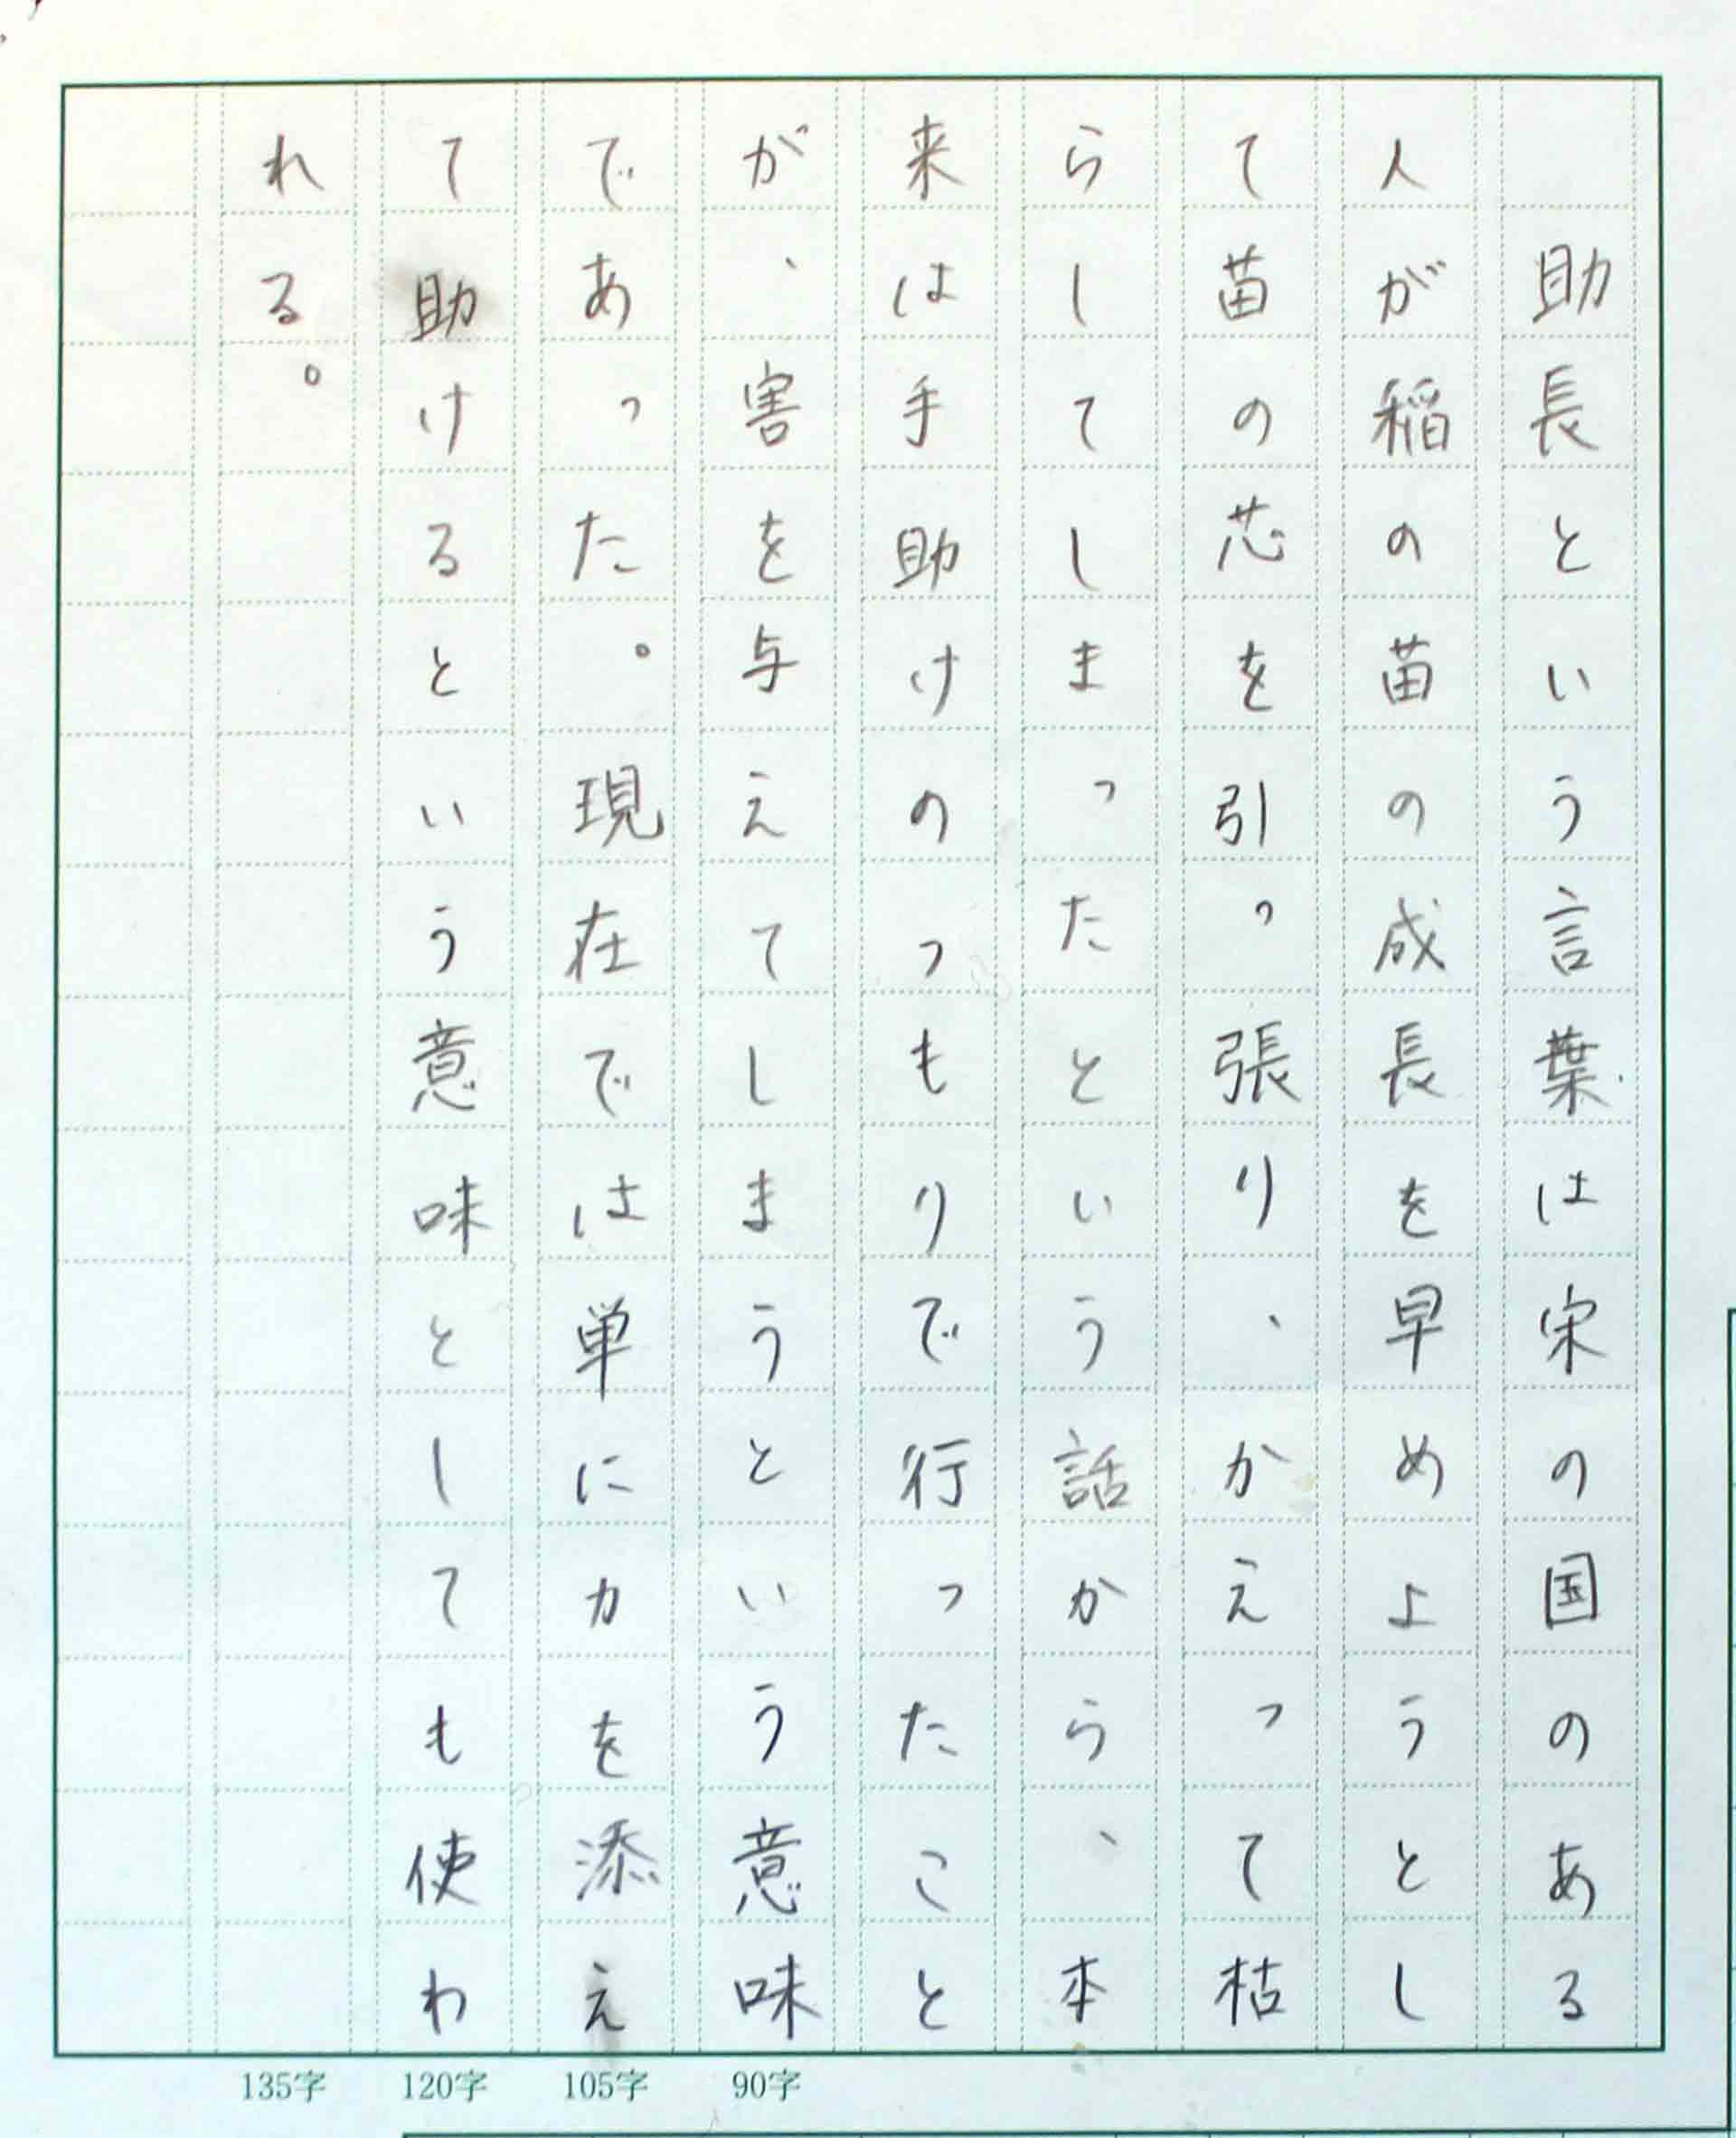 助長という言葉は宋の国のある
人が稲の苗の成長を早めようとし
て苗の芯を引っ張り、かえって枯
らしてしまったという話から、本
来は手助けのつもりで行ったこと
が、害を与えてしまうという意味
であった。現在では単に力を添え
て助けるという意味としても使わ
れる。
90字
105字
120字
135字